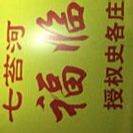 七苔河
福临
授权史各庄